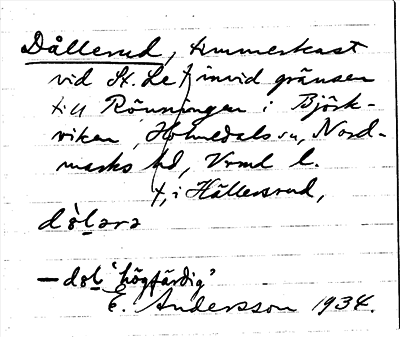 Dållerud, timmerkast
vid St. Le invid gränsen
till Rönningen i Björk-
viken, Holmedals sn, Nord-
marks hd, Vrml l.
t, i Hällersrud,
dòlara
— dol "högfärdig"
E. Andersson 1934.